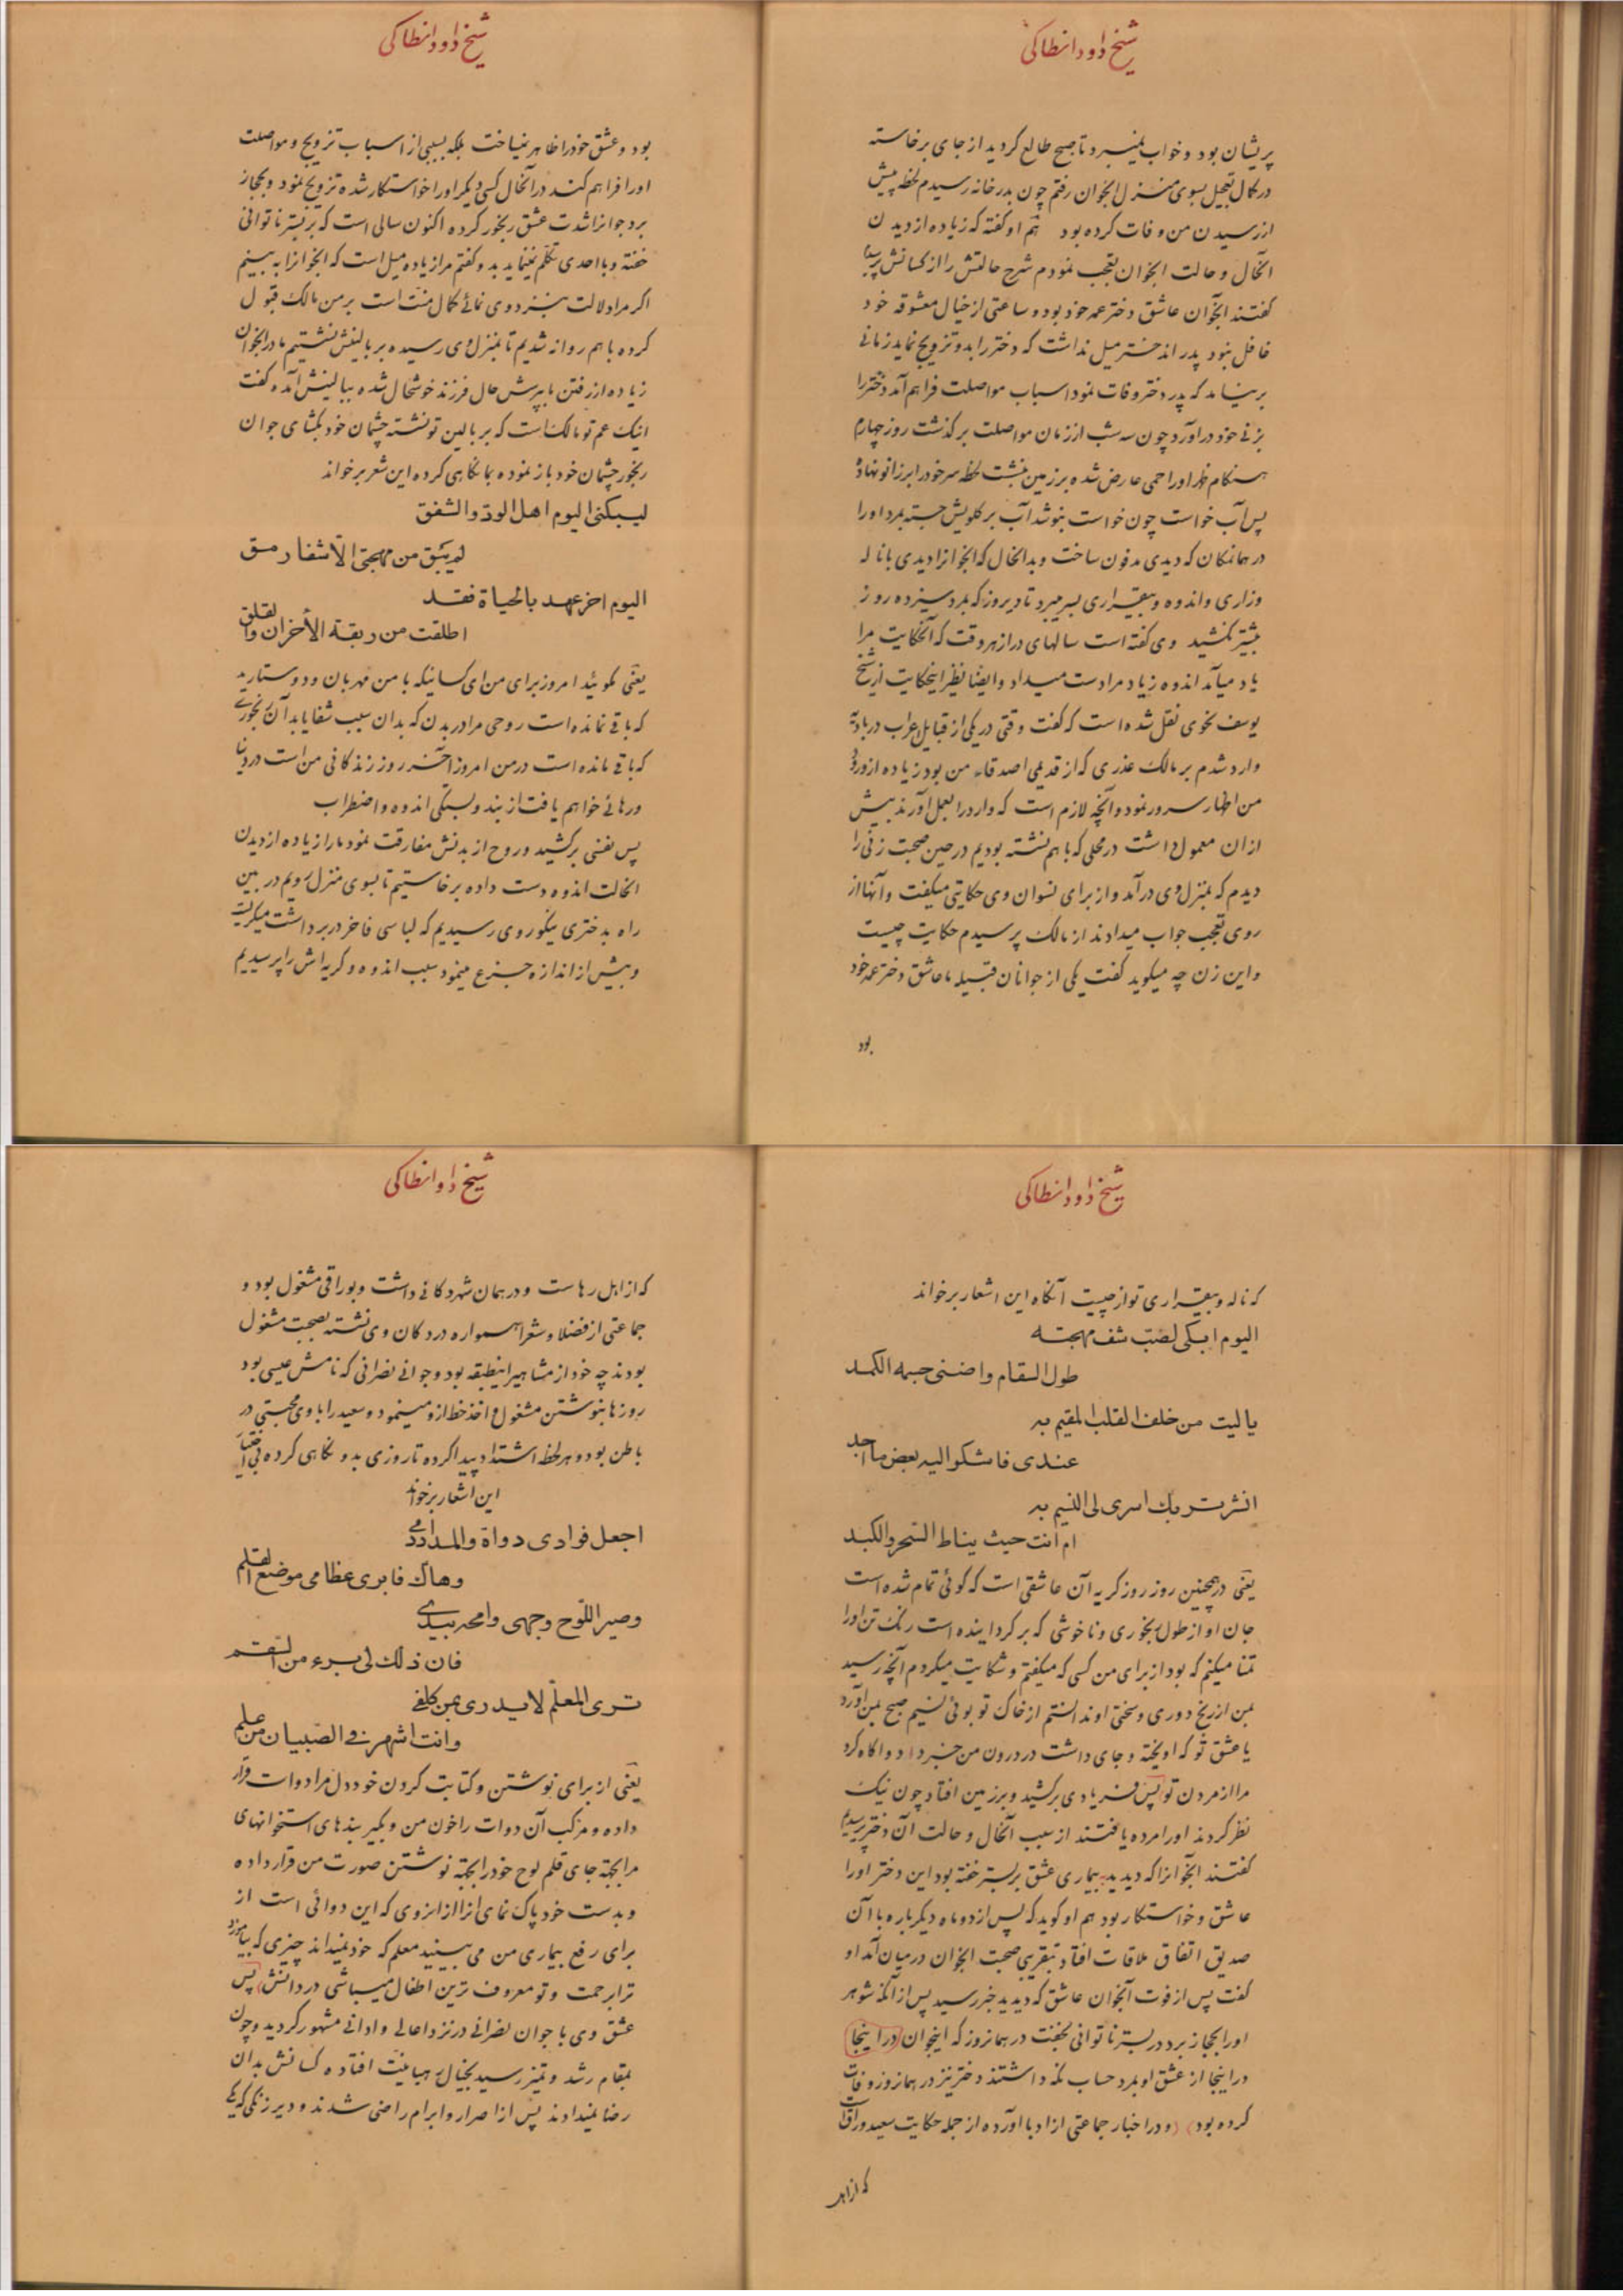 شیخ داود انطاکی
پریشان بود و خواب نمیبرد تا صبح طالع کردید از جای برخاسته
در کمال تعجیل بسوی منزل انجوان رفتم چون بدر خانه رسیدم لحظهٔ پیش
از رسیدن من وفات کرده بود هم او گفته که زیاده از دیدن
آنحال و حالت انجوان تعجب نمودم شرح حالتش را از کسانش پرسیدم
گفتند آنجوان عاشق دختر عمه خود بود و ساعتی از خیال معشوقه خود
غافل نبود پدر آندختر میل نداشت که دختر را بدو تزویج نماید زمانی
برنیامد که پدر دختر وفات نمود اسباب مواصلت فراهم آمد دختر را
بزنی خود درآورد چون سه شب از زمان مواصلت برگذشت روز چهارم
هنگام ظهر او را حمی عارض شده بر زمین بنشست لحظه سر خود را بر زانو نهاده
پس آب خواست چون خواست بنوشد آب بر گلویش جسته بمرد او را
در همانمکان که دیدی مدفون ساخت و بدانحال که انجوانرا دیدی با ناله
وزاری و اندوه و بیقراری بسر میبرد تا دیروز که بمرد سیزده روز
بیشتر نکشید وی گفته است سالهای دراز هر وقت که آنحکایت مرا
یاد میآمد اندوه زیاد مرا دست میداد و ایضا نظیر اینحکایت از شیخ
یوسف نحوی نقل شده است که گفت وقتی در یکی از قبایل اعراب در بادیه
وارد شدم بر مالک عذری که از قدیمی اصدقاء من بود زیاده از ورود
من اظهار سرور نمود و آنچه لازم است که وارد را بعمل آورند بیش
از آن معمول داشت در محلی که با هم نشسته بودیم در حین صحبت زنی را
دیدم که بمنزل وی درآمد و از برای نسوان وی حکایتی میگفت و آنها از
روی تعجب جواب میدادند از مالک پرسیدم حکایت چیست
و این زن چه میگوید گفت یکی از جوانان قبیله ما عاشق دختر عمه خود
بود
شیخ داود انطاکی
بود و عشق خود را ظاهر نمیساخت بلکه بسببی از اسباب تزویج و مواصلت
او را فراهم کند در آنحال کسی دیگر او را خواستکار شده تزویج نمود و بحجاز
برد جوانرا شدت عشق رنجور کرده اکنون سالی است که بر بستر ناتوانی
خفته و با احدی تکلم نمینماید بدو گفتم مرا زیاده میل است که انجوانرا به بینم
اگر مرا دلالت بنزد وی نمائی کمال منت است بر من مالک قبول
کرده با هم روانه شدیم تا بمنزل وی رسیده بر بالینش نشستیم مادر انجوان
زیاده از رفتن ما بپرسش حال فرزند خوشحال شده ببالینش آمده گفت
اینک عم تو مالک است که بر بالین تو نشسته چشمان خود بگشای جوان
رنجور چشمان خود باز نموده بما نگاهی کرده این شعر برخواند
لیبکنی الیوم اهل الودّ والشفق
لم یبق من مهجتی الّا شفا رمق
الیوم اخر عهد بالحیاة فقد
اطلقت من ربقة الأحزان والقلق
یعنی بگوئید امروز برای من ای کسانیکه با من مهربان و دوستارید
که باقی نمانده است روحی مرا در بدن که بدان سبب شفا یابد آن رنجوری
که باقی مانده است در من امروز آخر روز زندکانی من است در دنیا
و رهائی خواهم یافت از بند و بستگی اندوه و اضطراب
پس نفسی برکشید و روح از بدنش مفارقت نمود ما را زیاده از دیدن
انحالت اندوه دست داده برخاستیم تا بسوی منزل رویم در بین
راه بدختری نیکوروی رسیدیم که لباسی فاخر دربر داشت میگریست
و بیش از اندازه جزع مینمود سبب اندوه و گریه اش را پرسیدیم
شیخ داود انطاکی
که ناله و بیقراری تو از چیست آنگاه این اشعار برخواند
الیوم ابکی لصب شف مهجته
طول السقام واضنی جسمه الکمد
یا لیت من خلف القلب المقیم به
عندی فاشکو الیه بعض ما اجد
انشر تربك اسری لی النسیم به
ام انت حیث یناط السّحر والکبد
یعنی در همچنین روز روز گریه آن عاشقی است که گوئی تمام شده است
جان او از طول رنجوری و ناخوشی که برگردانیده است رنگ تن او را
تمنا میکنم که بود از برای من کسی که میگفتم و شکایت میکردم آنچه رسید
بمن از رنج دوری و سختی او ندانستم از خاک تو بوئی نسیم صبح بمن آورد
یا عشق تو که اویخته و جای داشت در درون من خبر داد و اگاه کرد
مرا از مردن تو پس فریادی برکشید و بر زمین افتاد چون نیک
نظر کردند او را مرده یافتند از سبب آنحال و حالت آن دختر پرسیدیم
گفتند آنجوانرا که دیدید بیماری عشق بر بستر خفته بود این دختر او را
عاشق و خواستکار بود هم او گوید که پس از دو ماه دیگر باره با آن
صدیق اتفاق ملاقات افتاد بتقریبی صحبت انجوان در میان آمد او
گفت پس از فوت آنجوان عاشق که دیدید خبر رسید پس از آنکه شوهر
او را بحجاز برد در بستر ناتوانی بخفت در همانروز که اینجوان در اینجا
در اینجا از عشق او بمرد حساب نگه داشتند دختر نیز در همانروز وفات
کرده بود و در اخبار جماعتی از ادبا آورده از جمله حکایت سعید وراق
که از اهل
شیخ داود انطاکی
که از اهل رهاست و در همان شهر دکانی داشت و بوراقی مشغول بود و
جماعتی از فضلا و شعرا همواره در دکان وی نشسته بصحبت مشغول
بودند چه خود از مشاهیر اینطبقه بود و جوانی نصرانی که نامش عیسی بود
روزها بنوشتن مشغول و اخذ خط از او مینمود و سعید را با وی محبتی در
باطن بود و هر لحظه اشتداد پیدا کرده تا روزی بدو نگاهی کرده بی اختیار
این اشعار برخواند
اجعل فوادی دواة والمداد دمی
وهاك فابری عظامی موضع القلم
وصیر اللّوح وجهی وامحه بیدی
فان ذلك لی برء من السّقم
تری المعلّم لا یدری بمن کلفی
وانت اشهر فی الصّبیان من علم
یعنی از برای نوشتن و کتابت کردن خود دل مرا دوات قرار
داده و مرکب آن دوات را خون من و بگیر بندهای استخوانهای
مرا بجهة جای قلم لوح خود را بجهة نوشتن صورت من قرار داده
و بدست خود پاک نمای انرا از انروی که این دوائی است از
برای رفع بیماری من می بینید معلم که خود نمیداند چیزی که بیاموزد
ترا برحمت و تو معروف ترین اطفال میباشی در دانش پس
عشق وی با جوان نصرانی در نزد اعالی و ادانی مشهور گردید و چون
بمقام رشد و تمیز رسید بخیال رهبانیت افتاده کسانش بدان
رضا نمیدادند پس از اصرار و ابرام راضی شدند و دیر زنکی که یکی